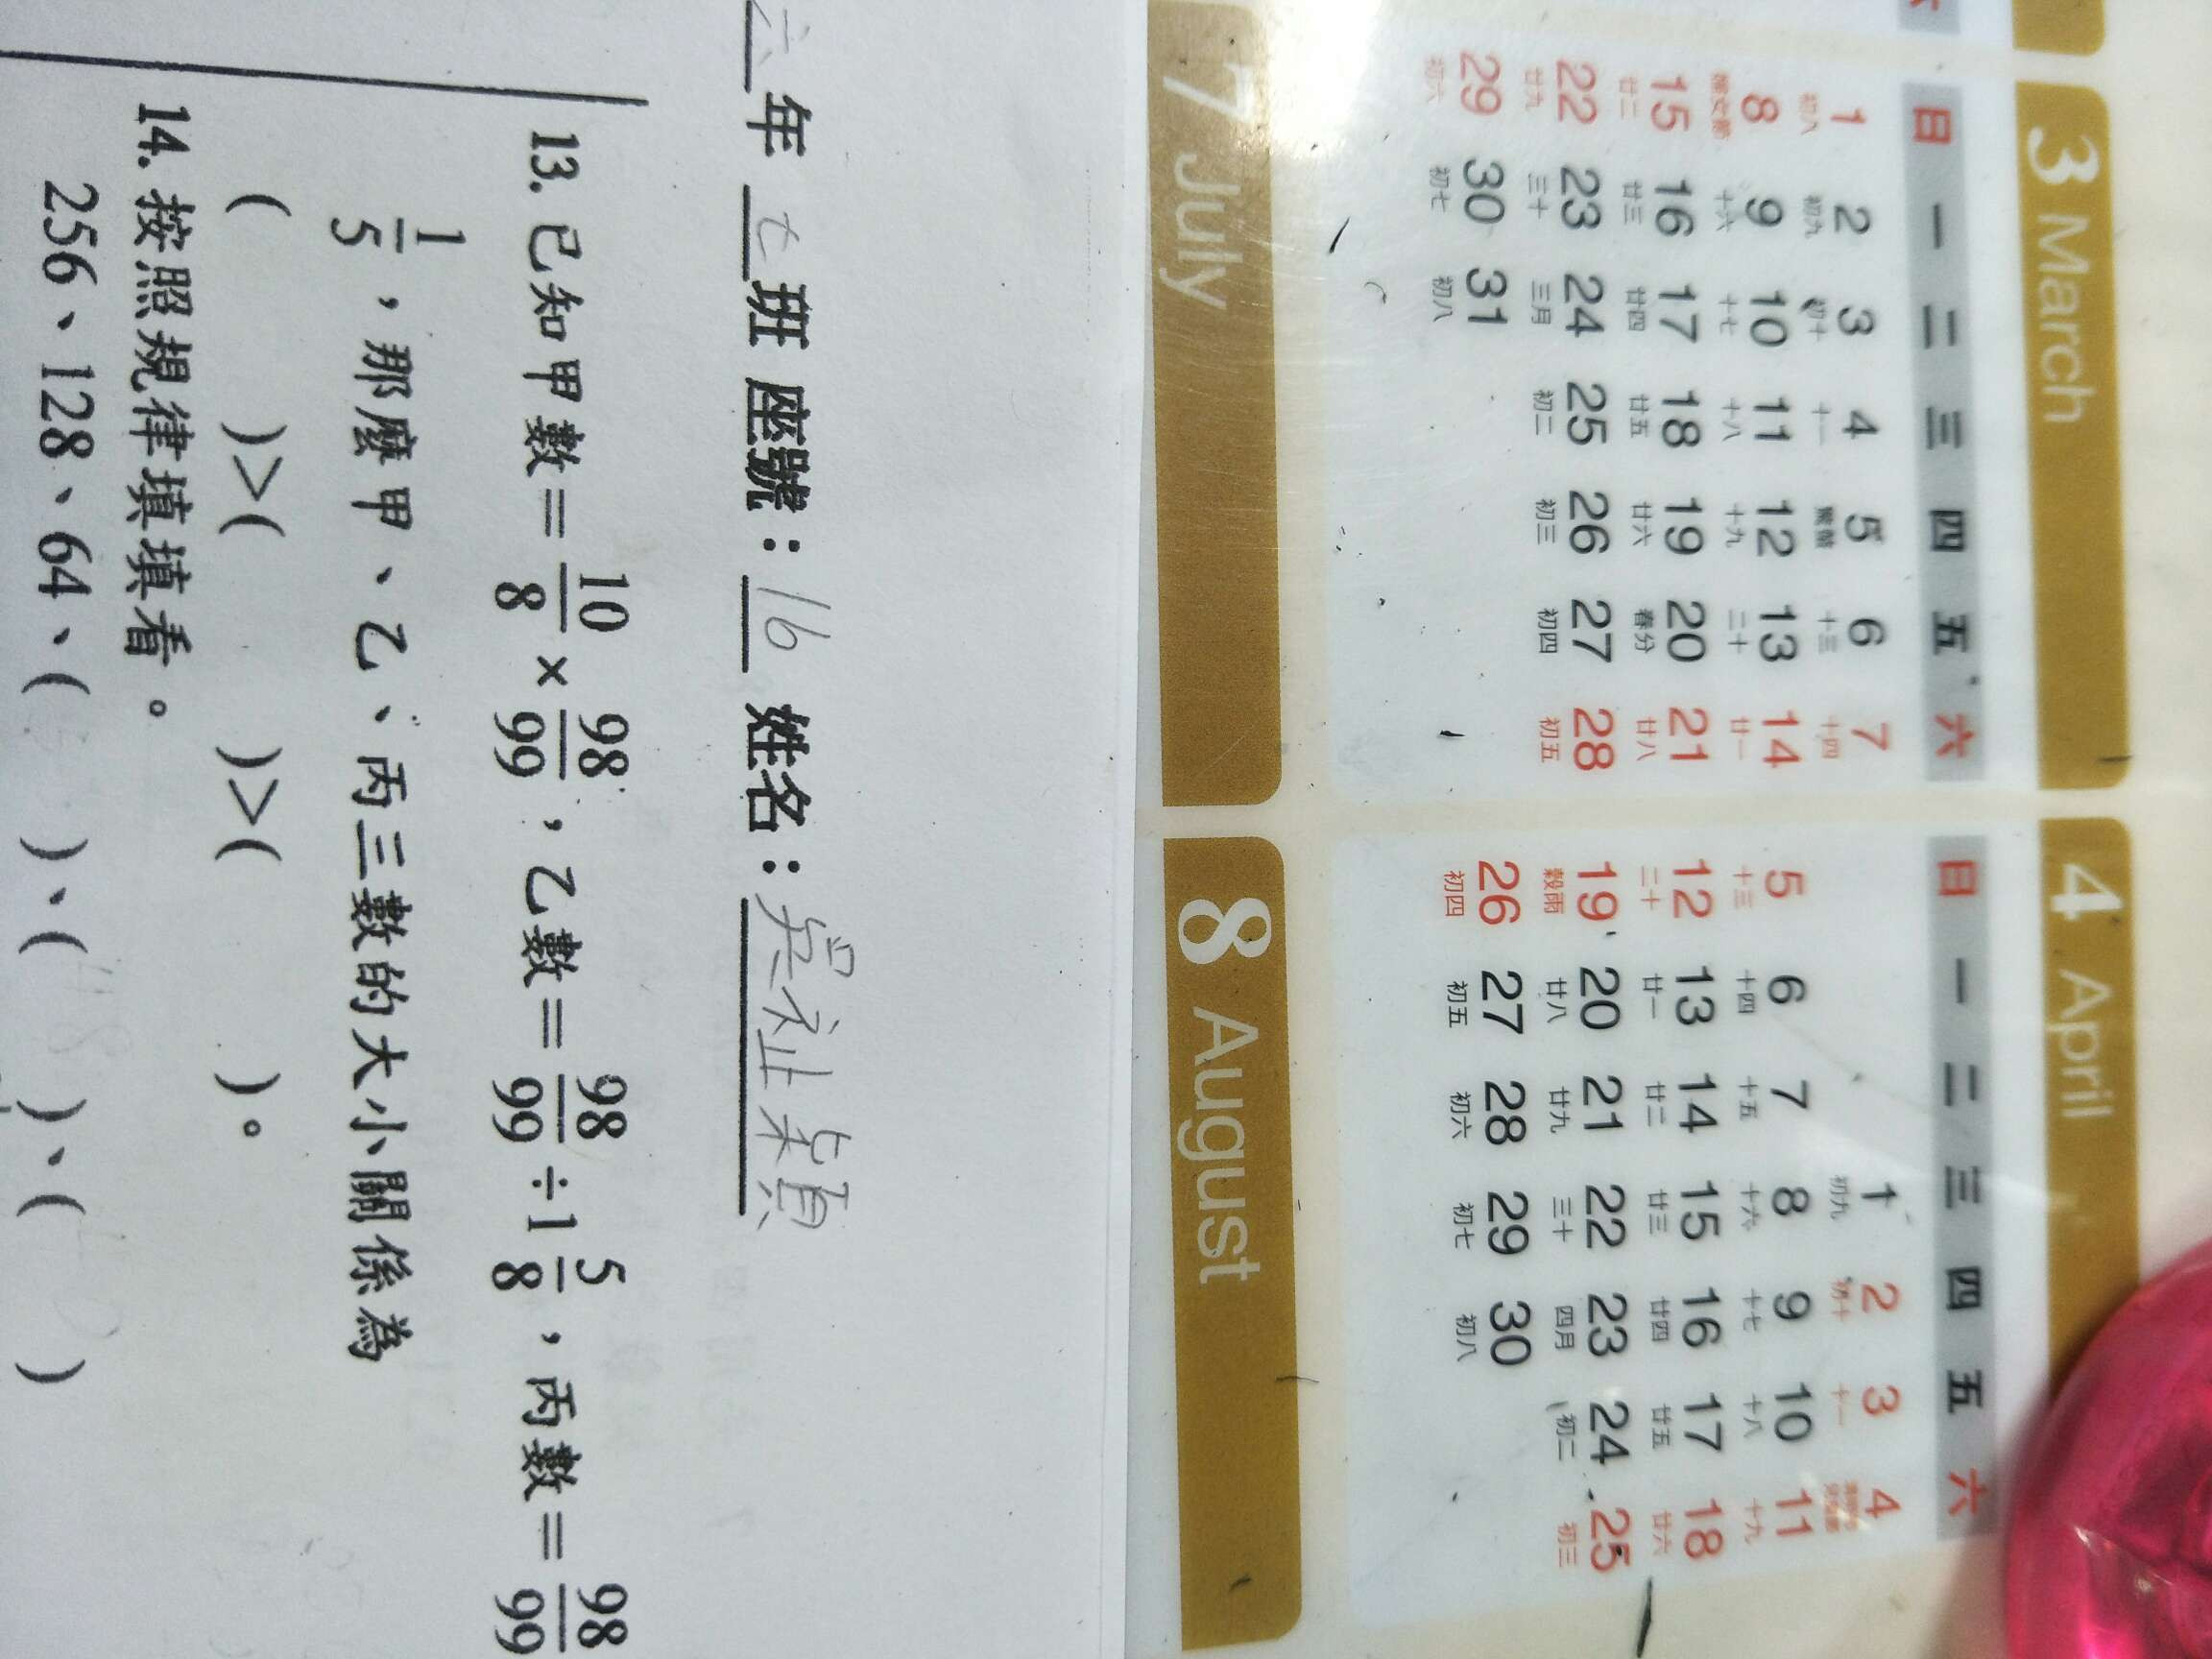 3 March
日 一 二 三 四 五 六
1 2 3 4 5 6 7
初八 初九 初十 十一 驚蟄 十三 十四
8 9 10 11 12 13 14
婦女節 十六 十七 十八 十九 二十 廿一
15 16 17 18 19 20 21
廿二 廿三 廿四 廿五 廿六 春分 廿八
22 23 24 25 26 27 28
廿九 三十 三月 初二 初三 初四 初五
29 30 31
初六 初七 初八
4 April
日 一 二 三 四 五 六
1 2 3 4
初九 初十 十一
5 6 7 8 9 10 11
十三 十四 十五 十六 十七 十八 十九
12 13 14 15 16 17 18
二十 廿一 廿二 廿三 廿四 廿五 廿六
19 20 21 22 23 24 25
穀雨 廿八 廿九 三十 四月 初二 初三
26 27 28 29 30
初四 初五 初六 初七 初八
7 July
8 August
六年七班 座號：16 姓名：吳祉穎
13. 已知甲數＝10/8×98/99，乙數＝98/99÷1 5/8，丙數＝98/99
1/5，那麼甲、乙、丙三數的大小關係為
(　　)>(　　)>(　　)。
14. 按照規律填填看。
256、128、64、(　　)、(　　)、(　　)